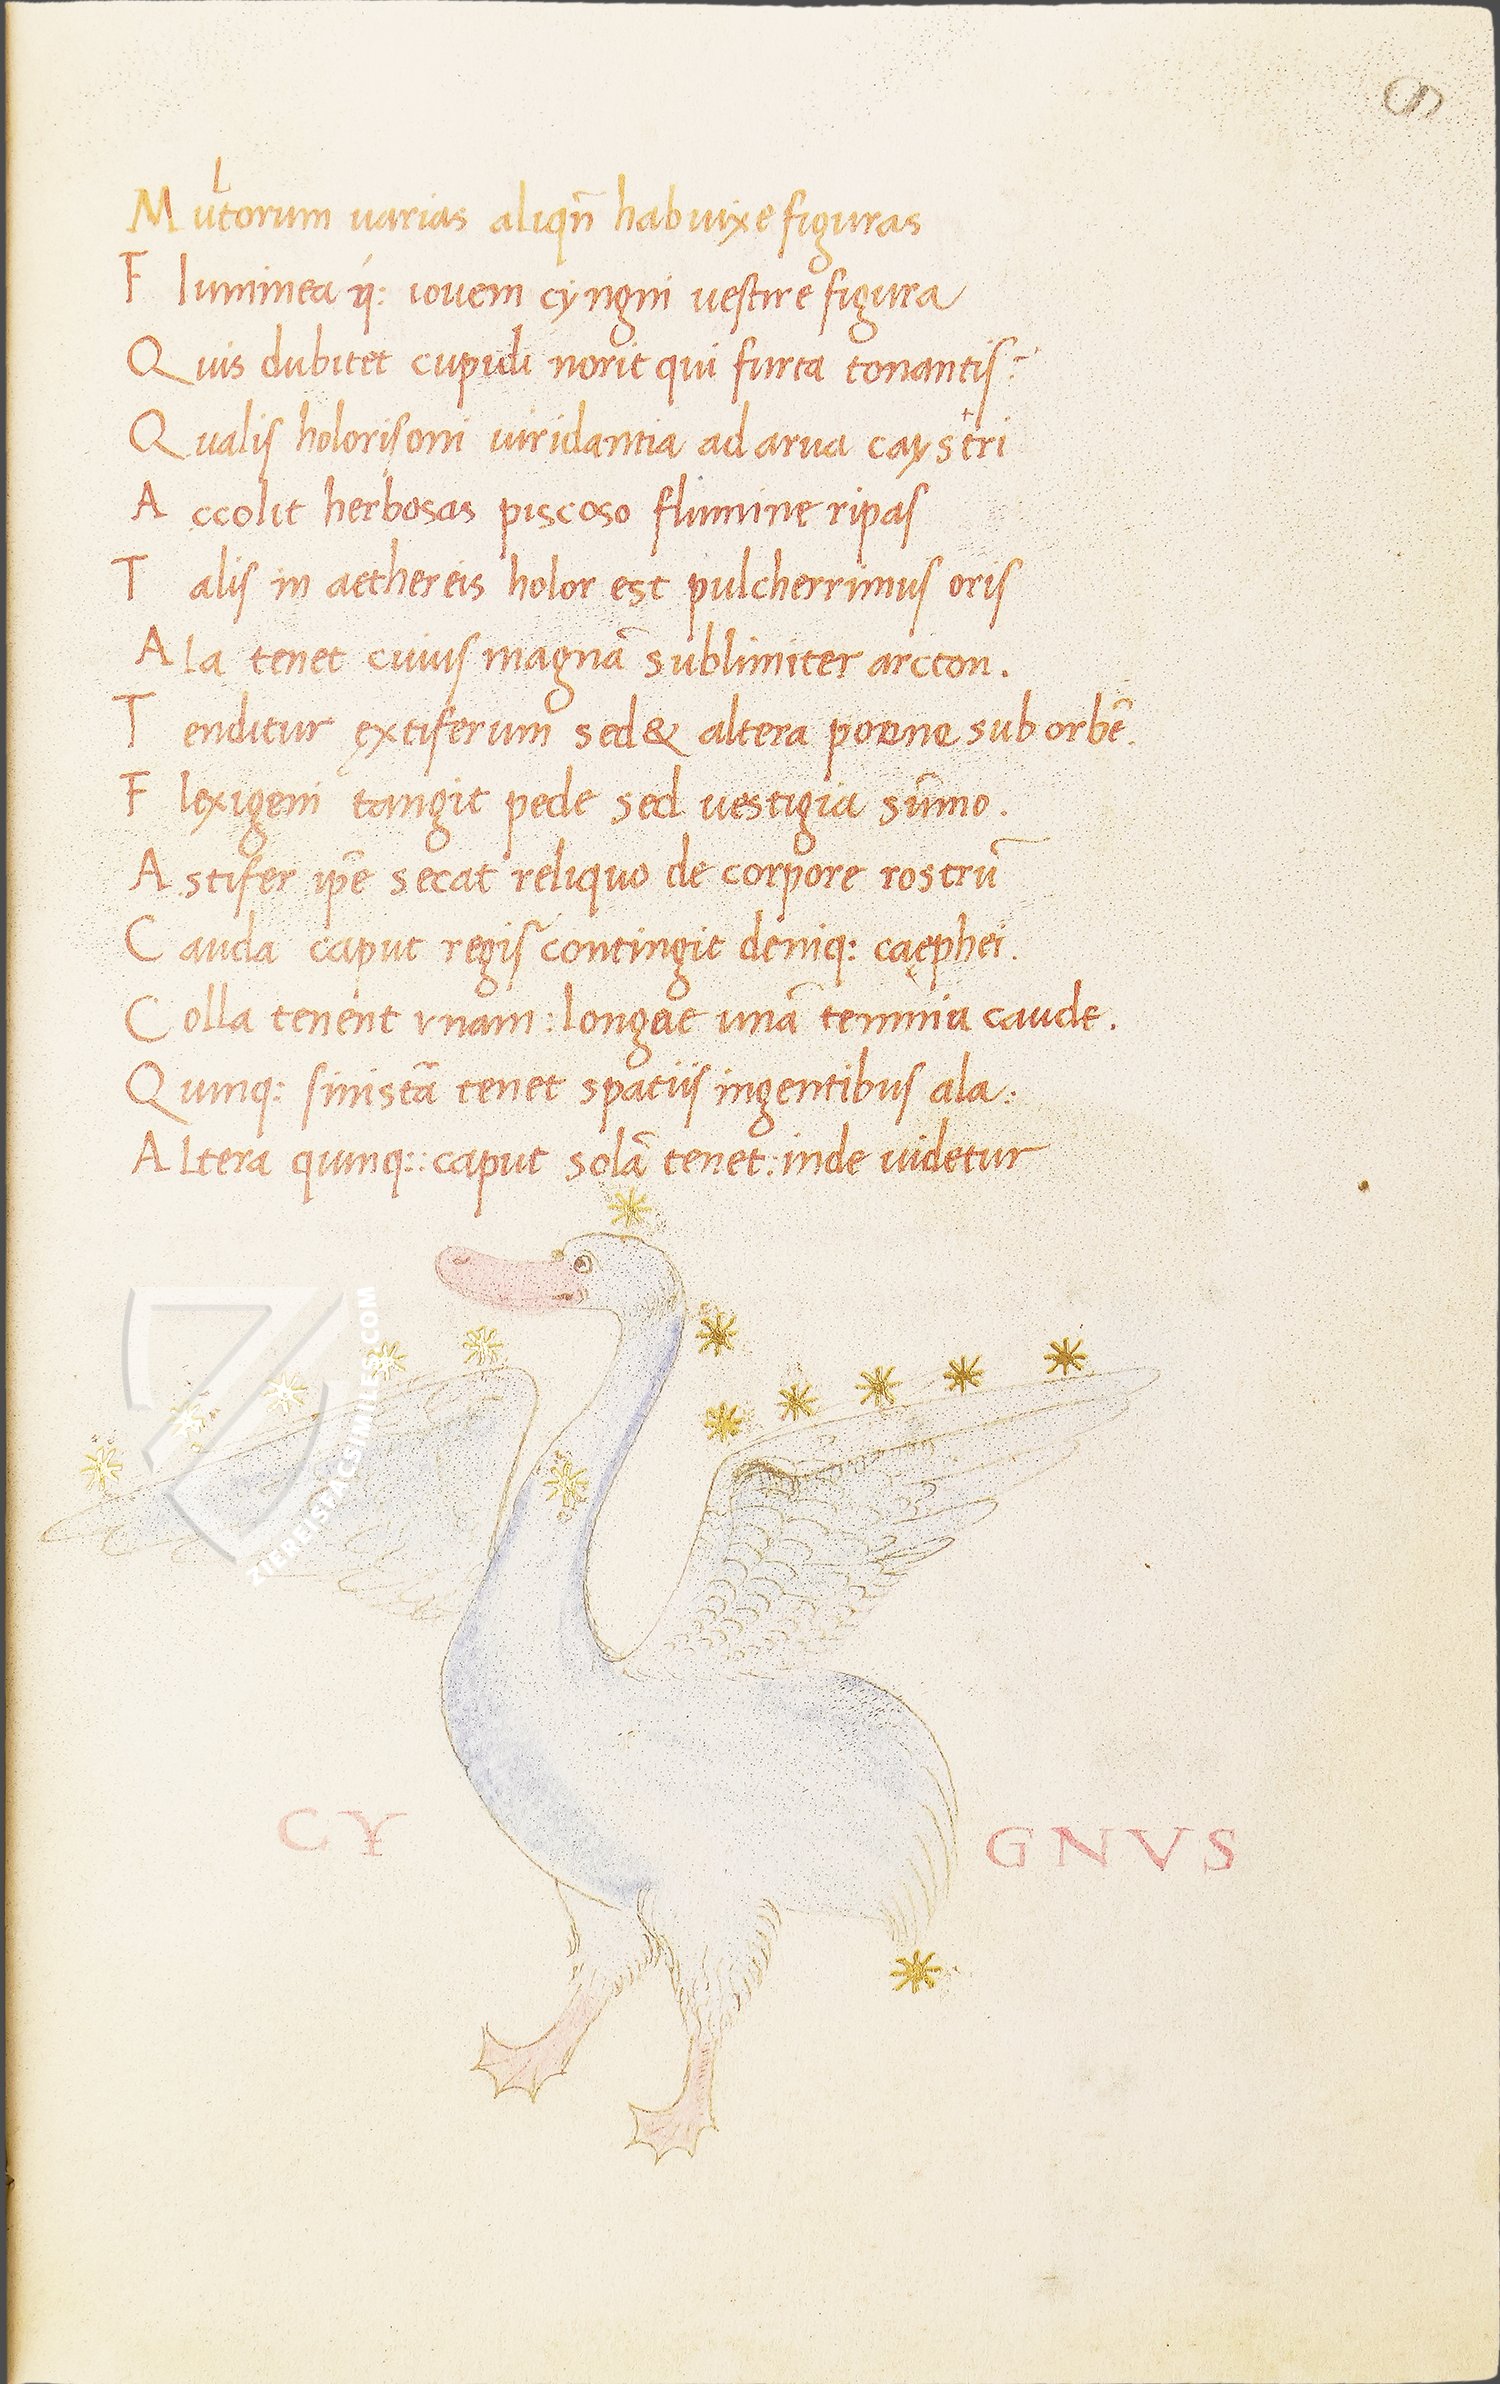 Multorum varias aliqñ habuixe figuras
Fluminea q́: iouem cyngni vestire figura
Quis dubitet cupidi norit qui furta tonantis?
Qualis holorisoni viridantia ad arva caystri
Accolit herbosas piscoso flumine ripas
Talis in aethereis holor est pulcherrimus oris
Ala tenet cuius magnā sublimiter arcton.
Tenditur extiferum sed & altera poene sub orbē.
Flexigeni tangit pede sed vestigia sūmo.
Astifer ipē secat reliquo de corpore rostrū
Cauda caput regis contingit deniq: caephei.
Colla tenent vnam: longae unā temnia caude.
Quinq: sinistā tenet spatiis ingentibus ala:
Altera quinq:: caput solā tenet: inde videtur
CY GNVS
ZIEREISFACSIMILES.COM